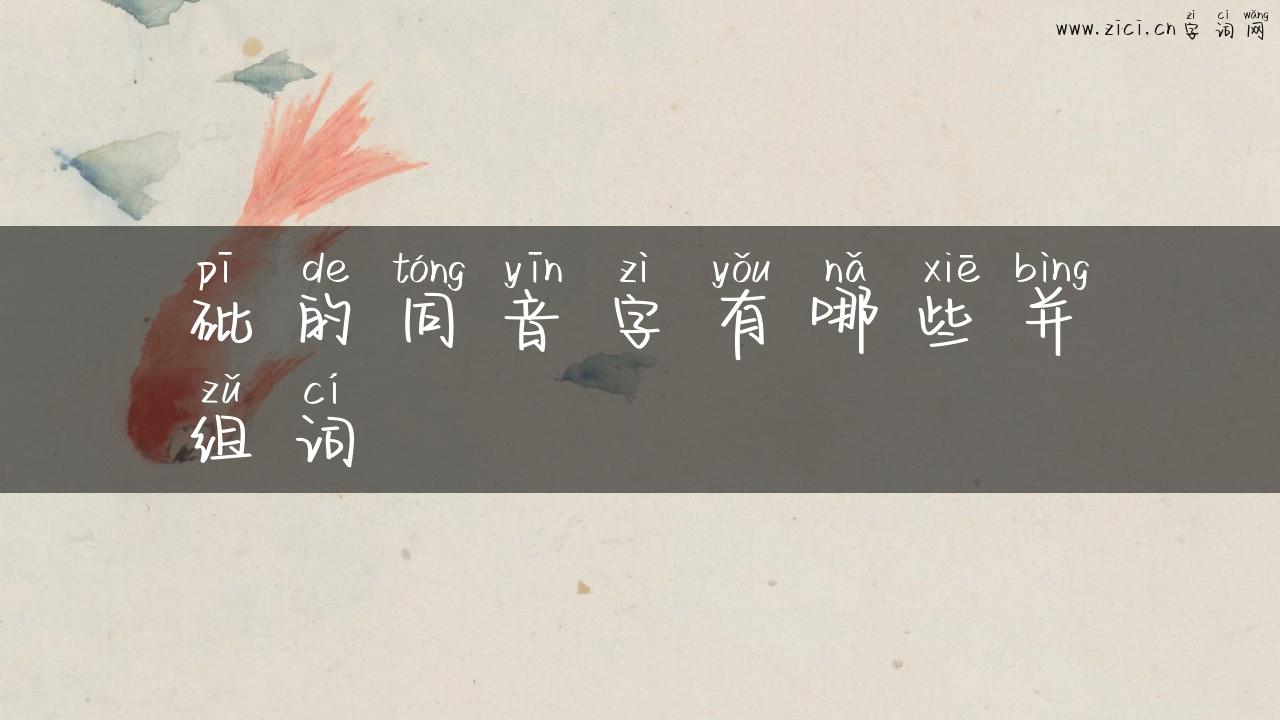 zì cí wǎng
www.zici.cn 字词网
pī de tóng yīn zì yǒu nǎ xiē bìng
砒的同音字有哪些并
zǔ cí
组词